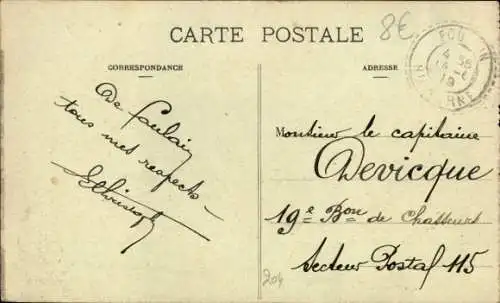 CARTE POSTALE
8€
CORRESPONDANCE
ADRESSE
De Foulain
tous mes respects
Monsieur le capitaine
Devicque
19e Bon de Chasseurs
Secteur Postal 115
204